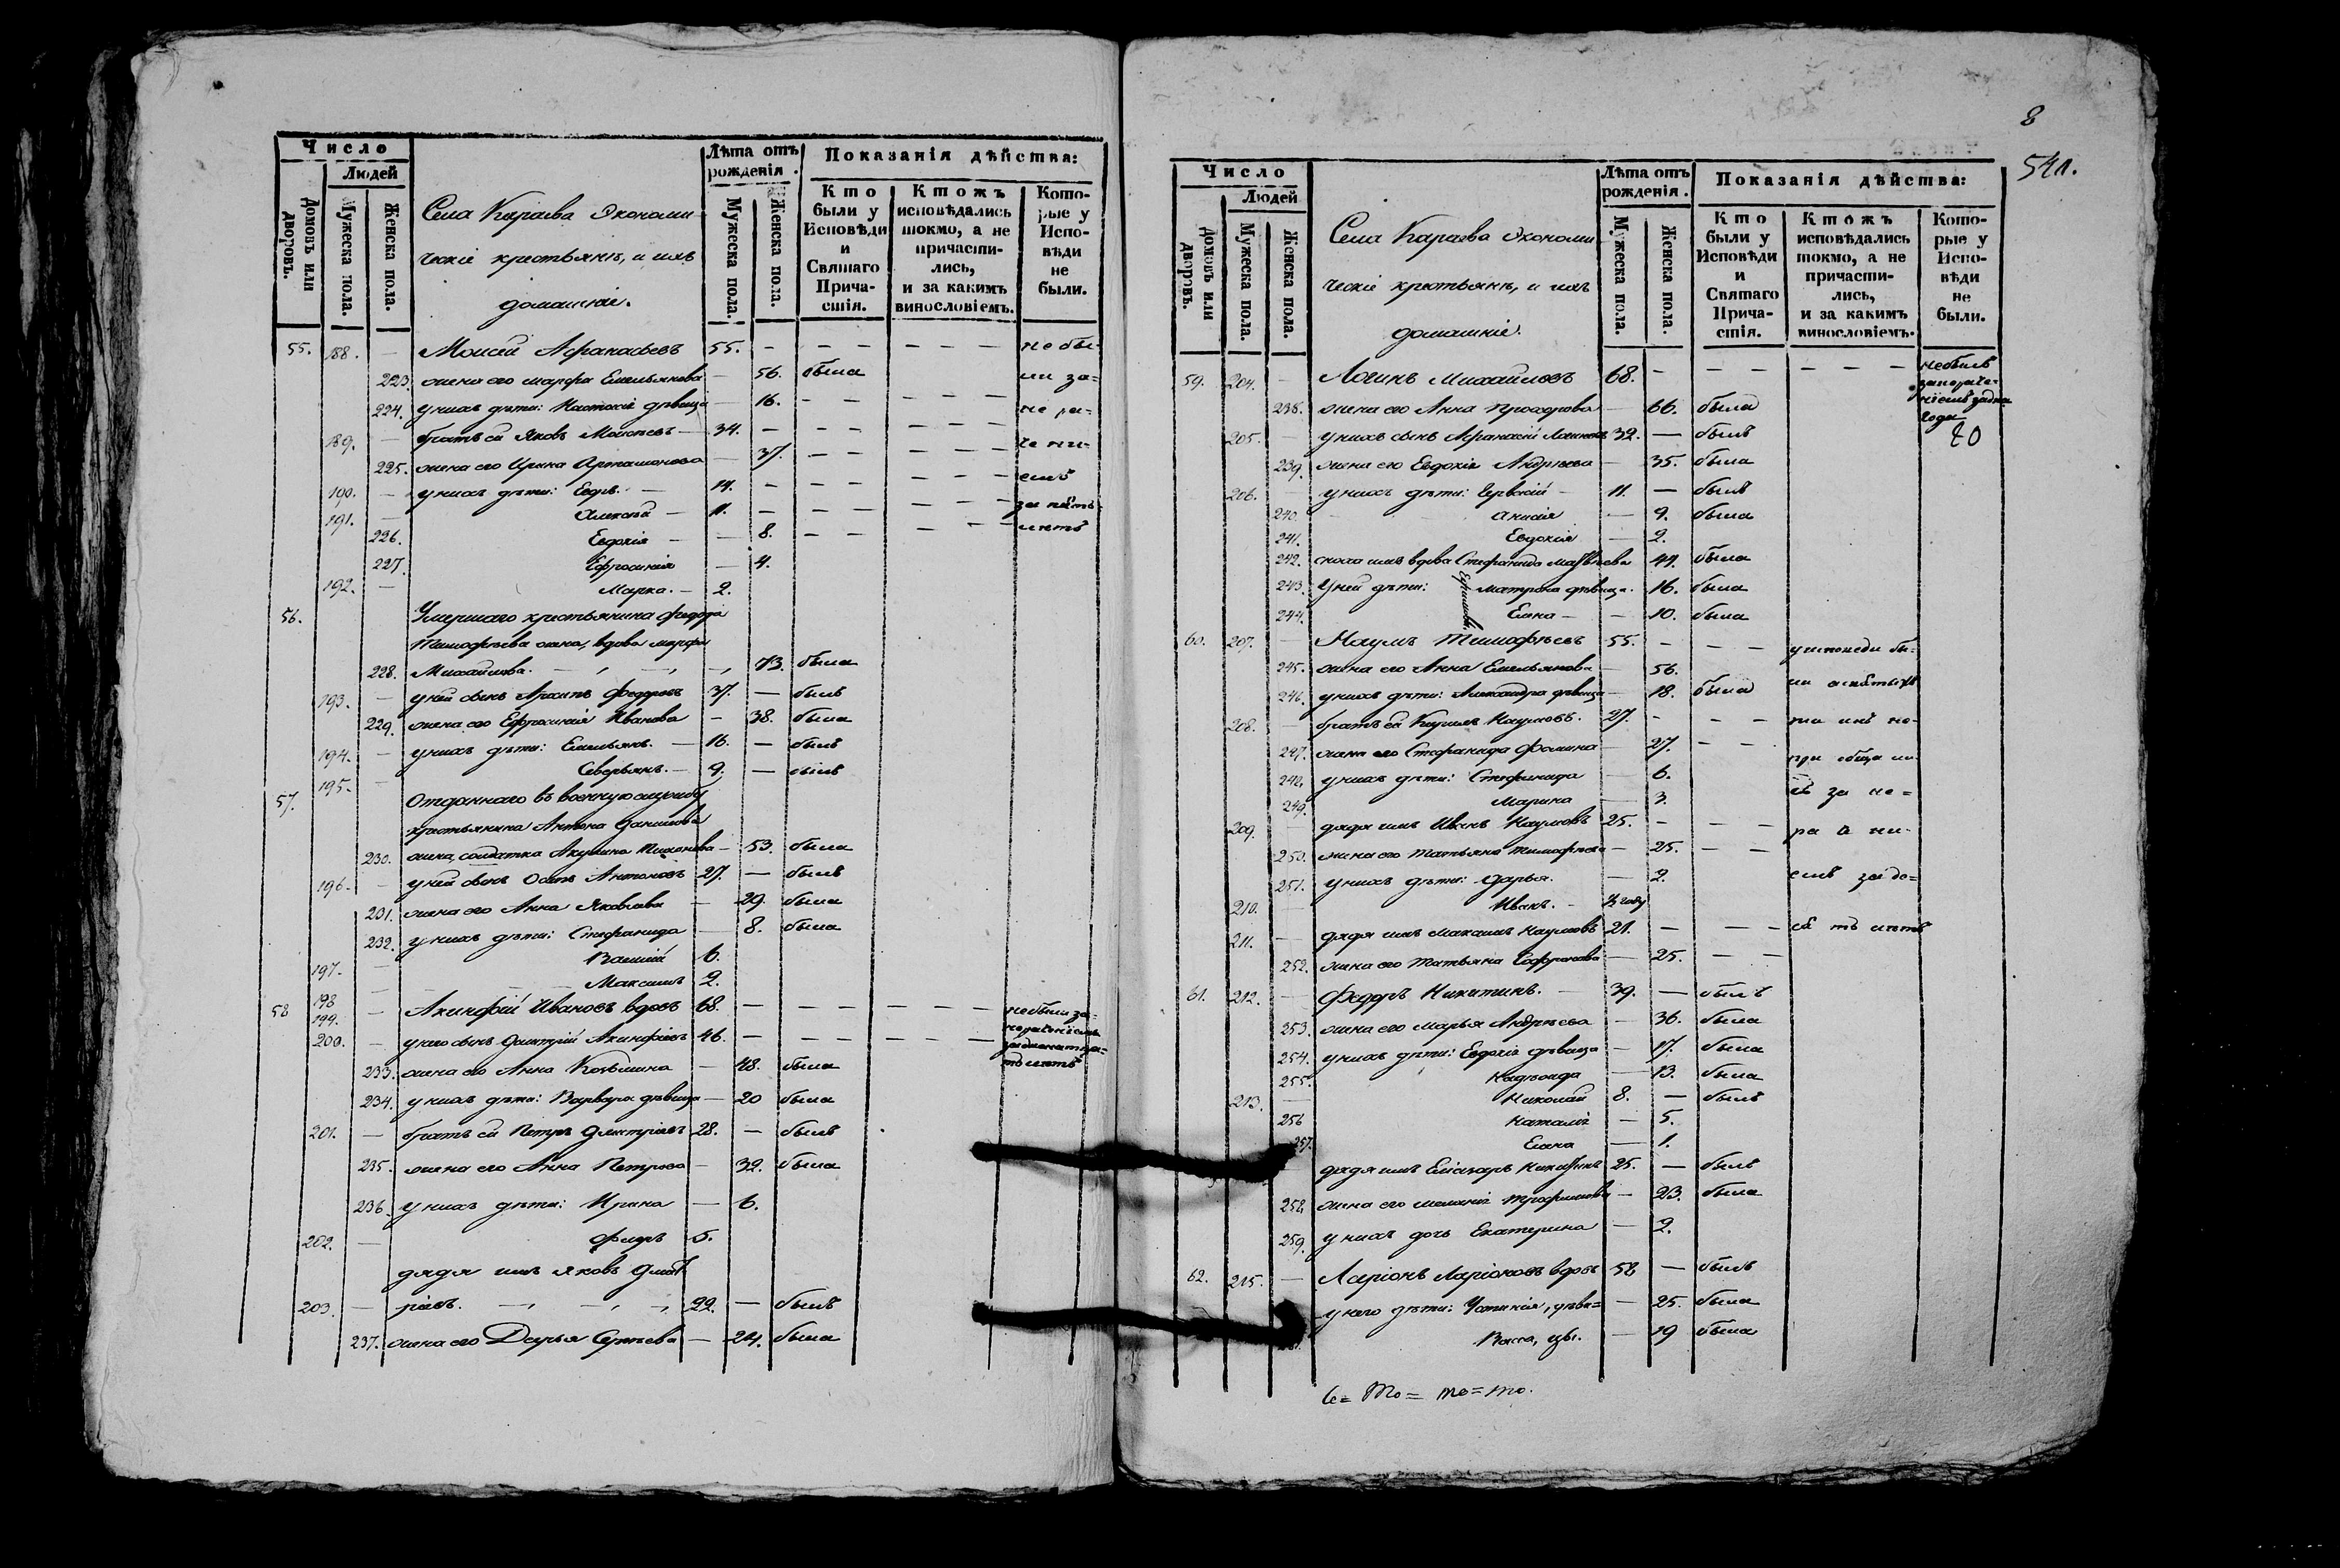 Число
Людей
Домовъ или дворовъ.
Мужеска пола.
Женска пола.
Села Караева Экономи
ческіе крестьянѣ, и ихъ
домашніе.
Лѣта отъ рожденія.
Мужеска пола.
Женска пола.
Показанія дѣйства:
Кто были у Исповѣди и Святаго Причастія.
Ктожъ исповѣдались токмо, а не причастились, и за какимъ винословіемъ.
Которые у Исповѣди не были.
55. 188. — Моисей Афанасьевъ 55. — — — — — — не бы-
223. жена его Марфа Емельянова — 56. была ли за=
224. у нихъ дѣти: девица — 16. — — — — — не ра-
189. — братъ ей Яковъ Моисеевъ — 34. — — — — — — че ні-
225. жена его Ирина Артамонова — 37. — — — — — емъ
190. — у нихъ дѣти: — 14. — — — — — — за пять
191. — Алексѣй — 11. — — — — — — лѣтъ
226. Евдокія — — 8. — — — — —
227. Ефросинія — 4.
192. — Марко. — 2.
56. Умершаго крестьянина Федора
Тимофѣева жена, вдова Марфа
228. Михайлова. — 73. была
193. — у ней сынъ Архипъ Федоровъ 37. — былъ
229. жена его Ефросинія Иванова — 38. была
194. — у нихъ дѣти: Емельянъ. — 16. — былъ
195. — Северьянъ. — 9. — былъ
57. Отданнаго въ военную службу
крестьянина Антона Данилова
230. жена, солдатка Акулина Тихонова — 53. была
196. — у ней сынъ Осипъ Антоновъ 27. — былъ
231. жена его Анна Яковлева — 29. была
232. у нихъ дѣти: Стефанида — 8. была
197. — Василій 6.
198 — Максимъ 2.
58 199. — Акинфій Ивановъ вдовъ 68. — — — — — — не были за-
200. — у него сынъ Дмитрій Акинфіевъ 46. — — — — — — нераченіемъ
233. жена его Анна Козьмина — 48. была лѣтъ
234. у нихъ дѣти: Варвара дѣвица — 20 была
201. — братъ ей Петръ Дмитріевъ 28. — былъ
235. жена его Анна Петрова — 32. была
236. у нихъ дѣти: Ирина — 6.
202. — Федоръ 5.
дядя имъ Яковъ Дмит
203. — ріевъ. — 22. — былъ
237. жена его Дарья Сергѣева — 24. была
8
541.
Число
Людей
Домовъ или дворовъ.
Мужеска пола.
Женска пола.
Села Караева Экономи
ческіе крестьянѣ, и ихъ
домашніе.
Лѣта отъ рожденія.
Мужеска пола.
Женска пола.
Показанія дѣйства:
Кто были у Исповѣди и Святаго Причастія.
Ктожъ исповѣдались токмо, а не причастились, и за какимъ винословіемъ.
Которые у Исповѣди не были.
59. 204. — Логинъ Михайловъ 68. — — — — — — не былъ
за нераче-
ніемъ за два
года
238. жена его Анна Прохорова — 66. была
20
205. — у нихъ сынъ Афанасій Логиновъ 39. — былъ
239. жена его Евдокія Андреева — 35. была
206. — у нихъ дѣти: — 11. — былъ
240. Анисія — 9. была
241. Евдокія — 2.
242. сноха имъ вдова Стефанида Матвѣева 44. была
243. У ней дѣти: Ефимовы Матрона дѣвица. 16. была
244. Елена — — 10. была
60. 207. — Наумъ Тимофѣевъ 55. — — — у исповеди бы-
245. жена его Анна Емельянова — 56.
246. у нихъ дѣти: Александра дѣвица — 18. была ли а святыхъ
208. — братъ ей Кириллъ Наумовъ. 27. — — — таинъ не-
247. жена его Стефанида Фомина — 27. — — при обща ли-
248. у нихъ дѣти: Стефанида — 6.
249. Марина — 3. сь за не=
209. — дядя имъ Иванъ Наумовъ 25. — — — ра че ні-
250. жена его Татьяна Тимофѣева — 25. — —
251. у нихъ дѣти: Дарья. — 2. емъ за де=
210. — Иванъ. — ½ году
211. — дядя имъ Максимъ Наумовъ 21. — — — ся ть лѣтъ
252. жена его Татьяна — 25. — —
61. 212. — Федоръ Никитинъ. — 39. — былъ
253. жена его Марья Андреева — 36. была
254. у нихъ дѣти: Евдокія дѣвица — 17. была
255. Надежда — 13. была
213. — Николай 8. — былъ
256 Наталія — 5.
257. Елена — 1.
дядя имъ Никитинъ 25. — былъ
258. жена его Меланія Трофимова — 23. была
259. у нихъ дочь Екатерина — 2.
62. 215. — Ларіонъ Ларіоновъ вдовъ 58 — былъ
у него дѣти: Устинія, дѣви= — 25. была
Васса, цы. — 19 была
Се= Мо= те= то.